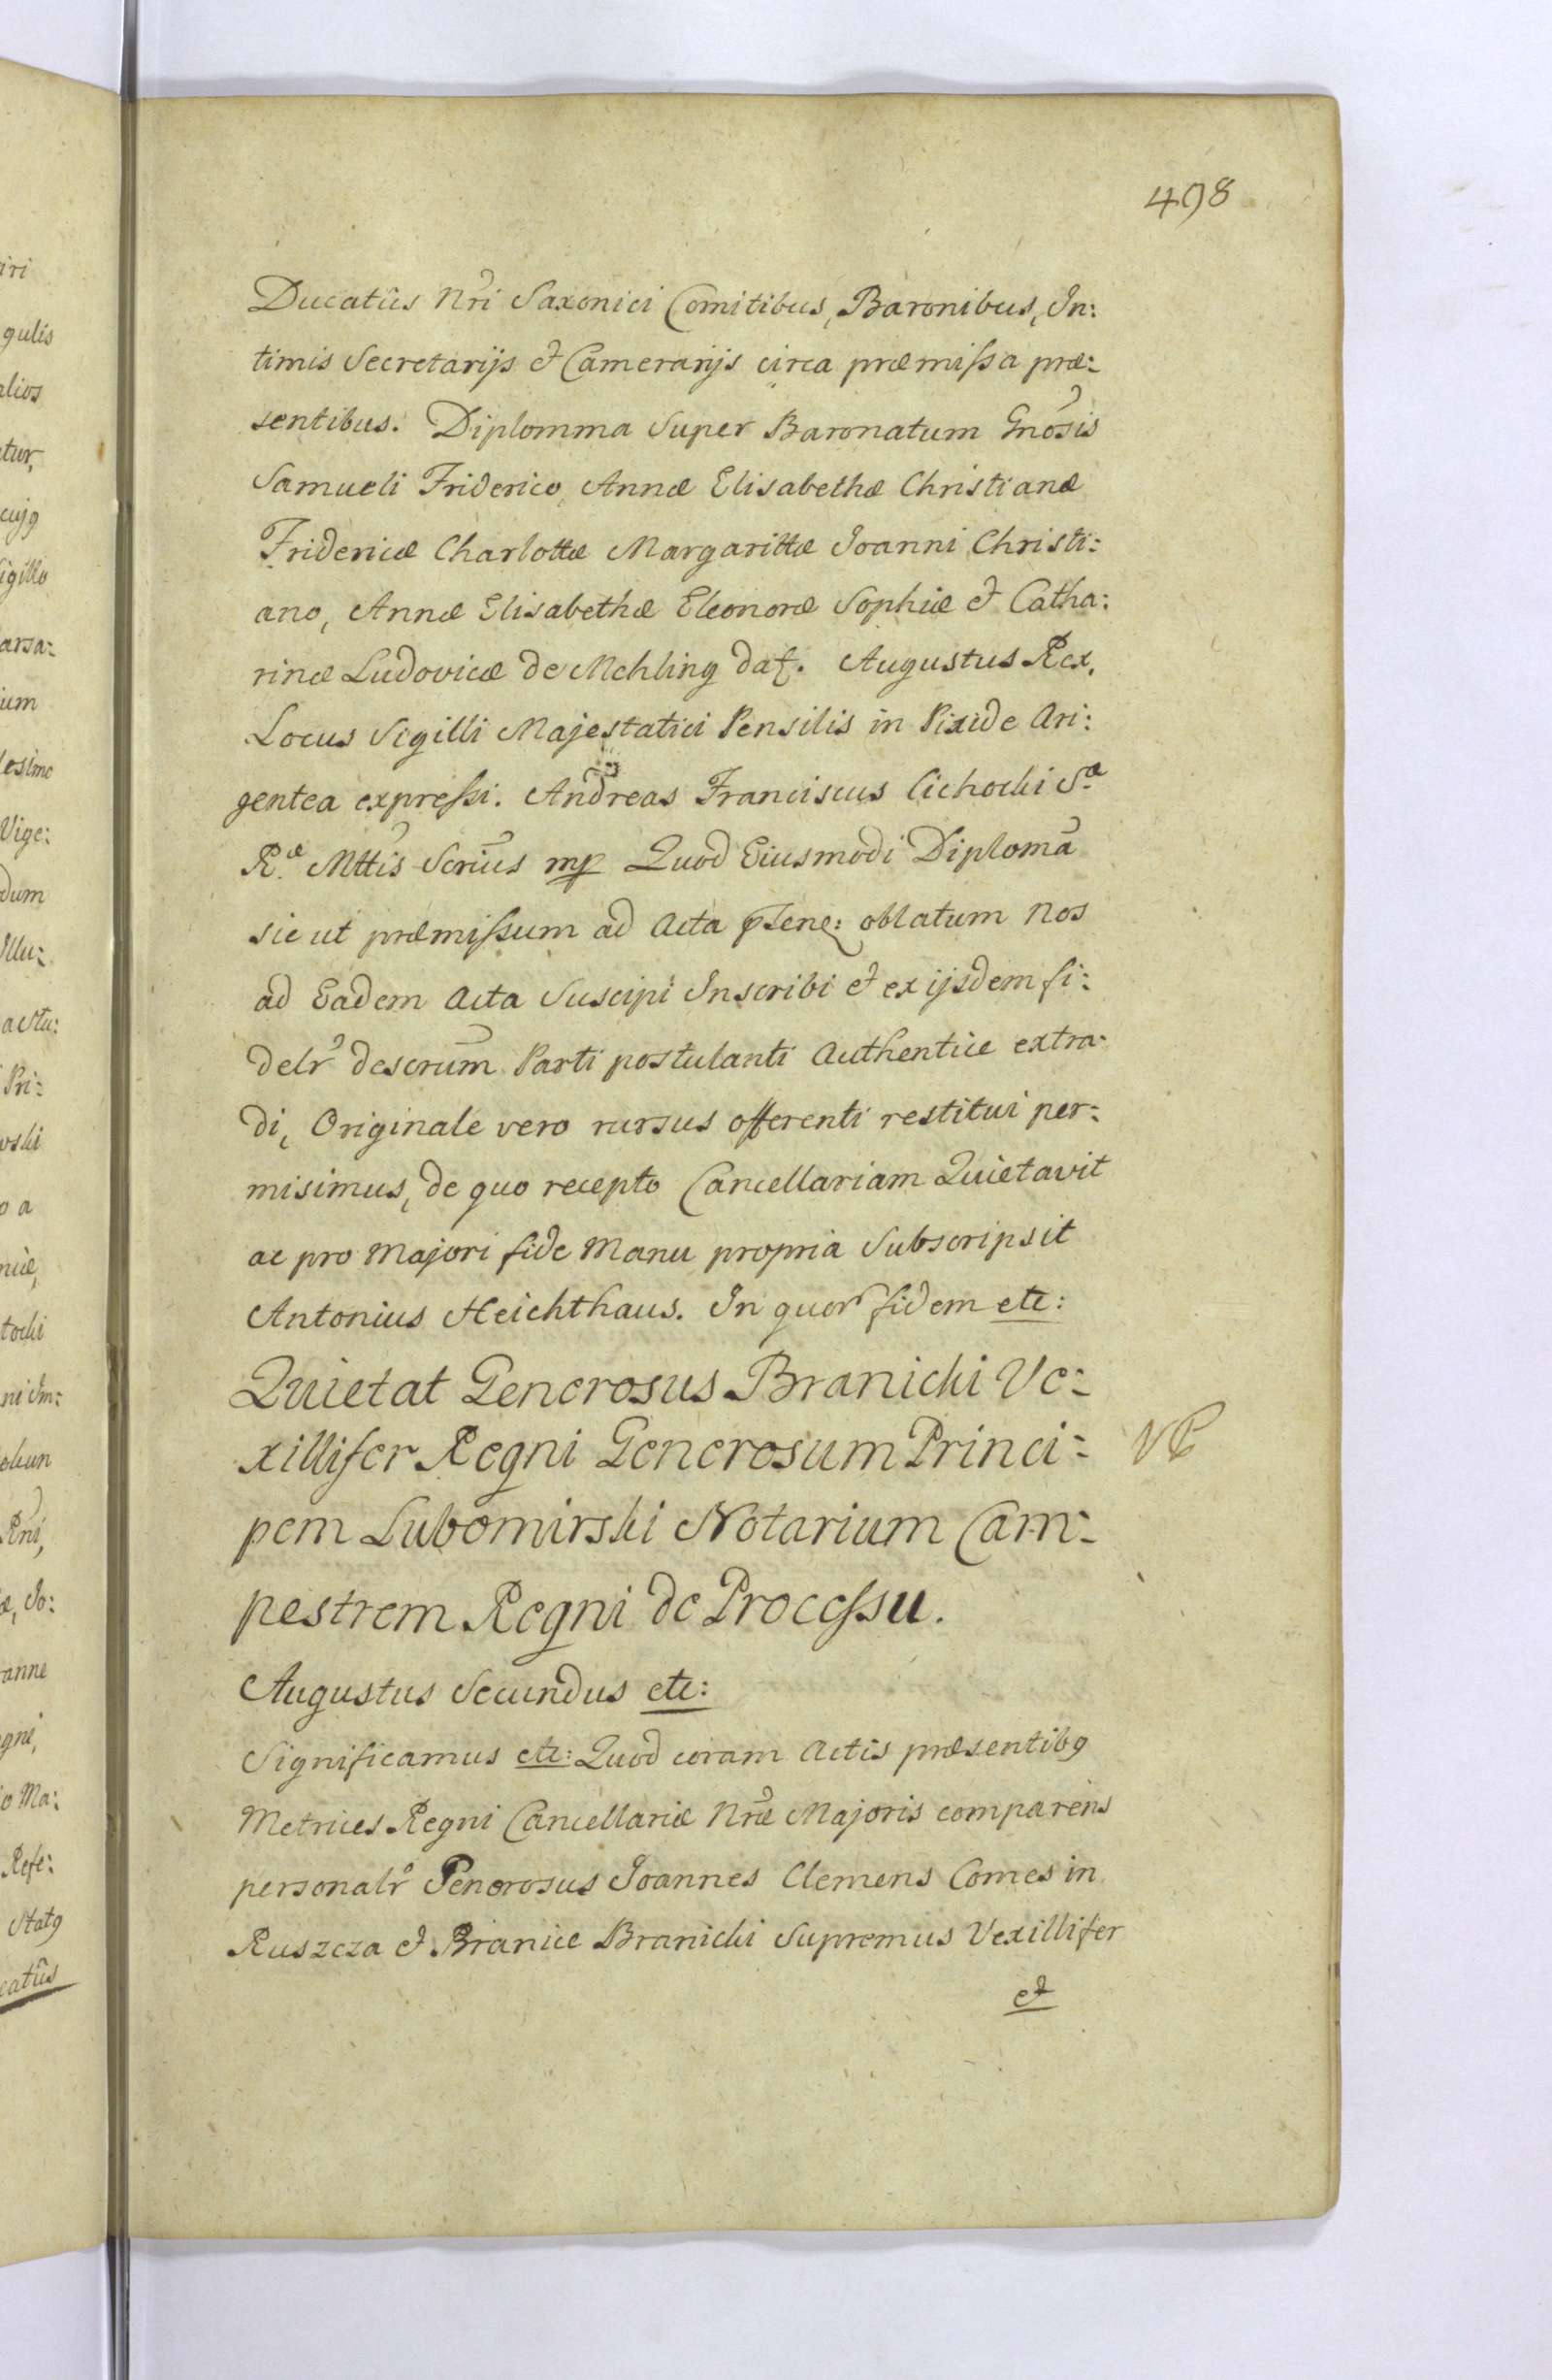 498
Ducatûs Nri Saxonici Comitibus, Baronibus, In:
timis Secretarijs & Camerarijs circa præmissa præ:
sentibus. Diplomma Super Baronatum Gnosis
Samueli Friderico, Annæ Elisabethæ Christianæ
Fridericæ Charlottæ Margarittæ Joanni Christi:
ano, Annæ Elisabethæ Eleonoræ Sophiæ & Catha:
rinæ Ludovicæ de Mehling dat. Augustus Rex.
Locus Sigilli Majestatici Pensilis in Pixide Ari:
gentea expressi. Andreas Franciscus Cichocki S.æ
R.æ Mttis Scrius mp Quod Eiusmodi Diploma
sic ut præmissum ad Acta oblatum Nos
ad Eadem Acta Suscipi Inscribi & ex ijsdem fi:
delr descrum Parti postulanti Authentice extra:
di, Originale vero rursus offerenti restitui per:
misimus, de quo recepto Cancellariam Quietavit
ac pro Majori fide Manu propria Subscripsit
Antonius Heichthaus. In quor fidem etc:
Quietat Generosus Branicki Ve:
xillifer Regni Generosum Princi:
pem Lubomirski Notarium Cam:
pestrem Regni de Processu.
Augustus Secundus etc:
Significamus etc: Quod coram Actis præsentibq
Metrices Regni Cancellariæ Nræ Majoris comparens
personalr Generosus Joannes Clemens Comes in
Ruszcza & Branice Branicki Supremus Vexillifer
&